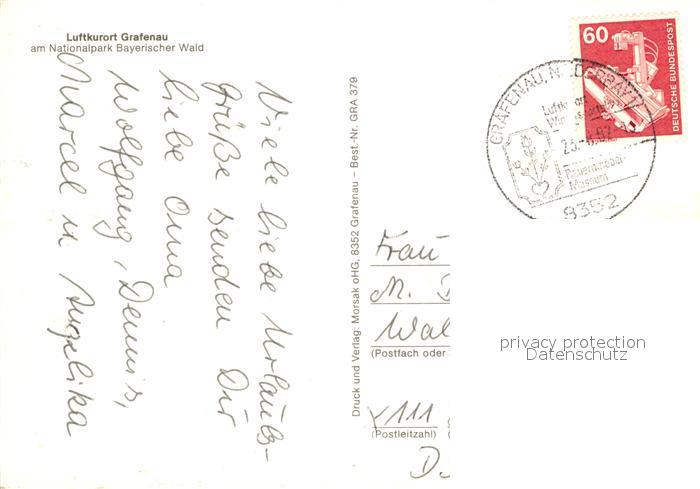 Luftkurort Grafenau
am Nationalpark Bayerischer Wald
Viele liebe Urlaubs-
grüße senden Dir
liebe Oma
Wolfgang, Dennis,
Marcel u Angelika
Druck und Verlag: Morsak oHG, 8352 Grafenau – Best.-Nr. GRA 379
60
DEUTSCHE BUNDESPOST
GRAFENAU, NIEDERBAY 1
Bauernmöbel-
Museum
8352
Frau
M.
(Postfach oder
111
(Postleitzahl)
privacy protection
Datenschutz